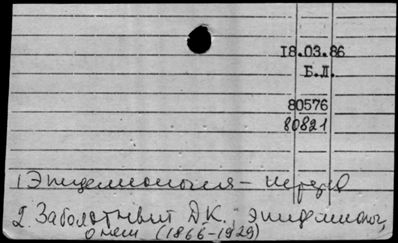 18.03.86
Б.Л.
80576
80821
1 Эпидемиология –
2. Заболотный Д.К., эпидемиолог,
о нем (1866-1929)